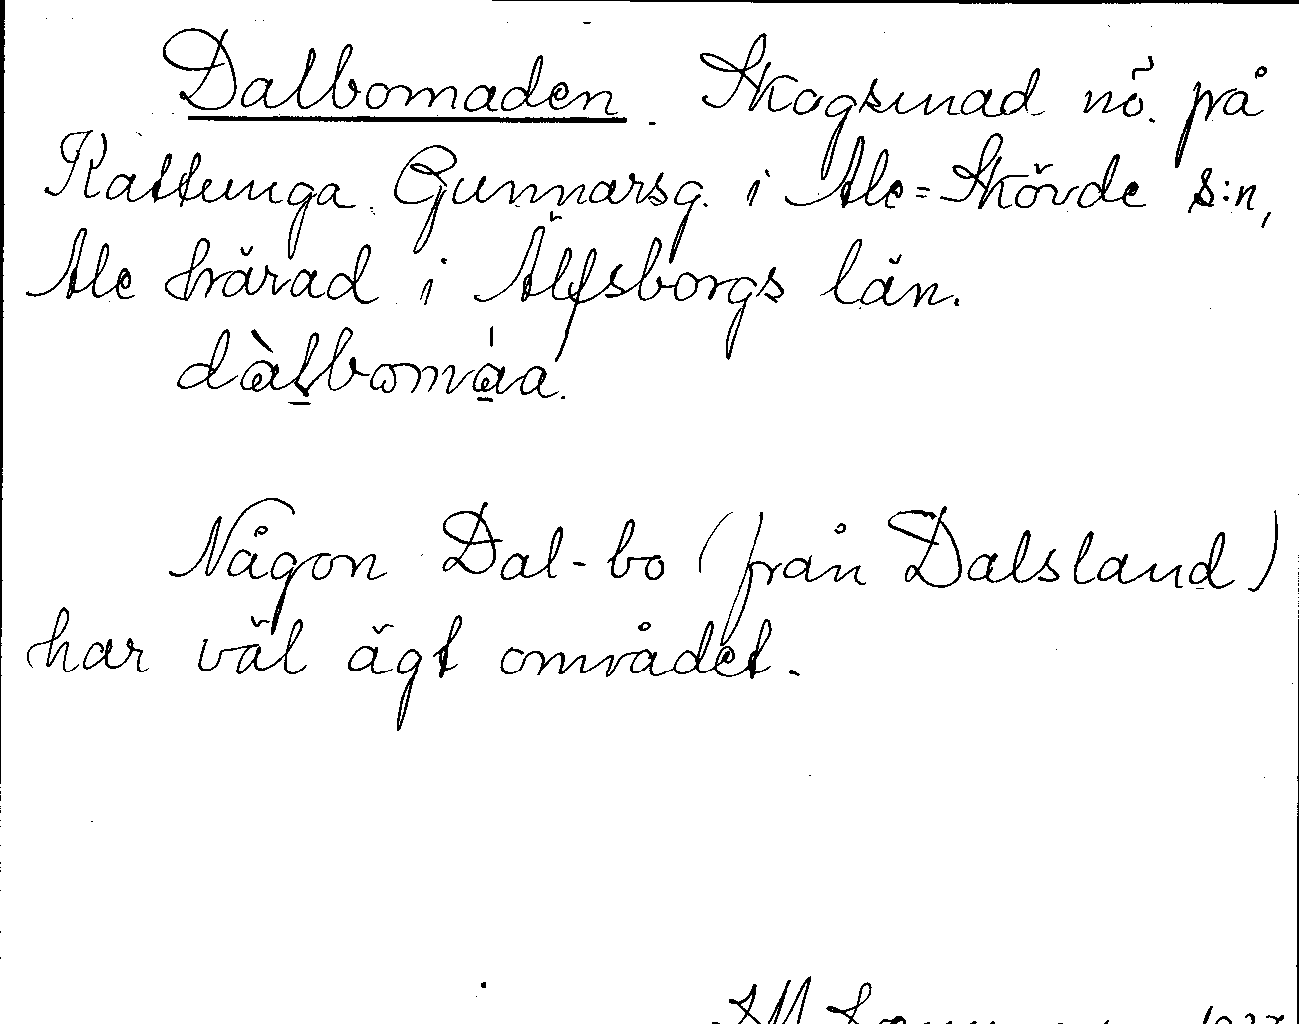 Dalbomaden. Skogsmad nö. på
Kattunga Gunnarsg. i Ale-Skövde s:n,
Ale härad i Älfsborgs län.
dàlbomáa.
Någon Dal-bo (från Dalsland)
har väl ägt området.